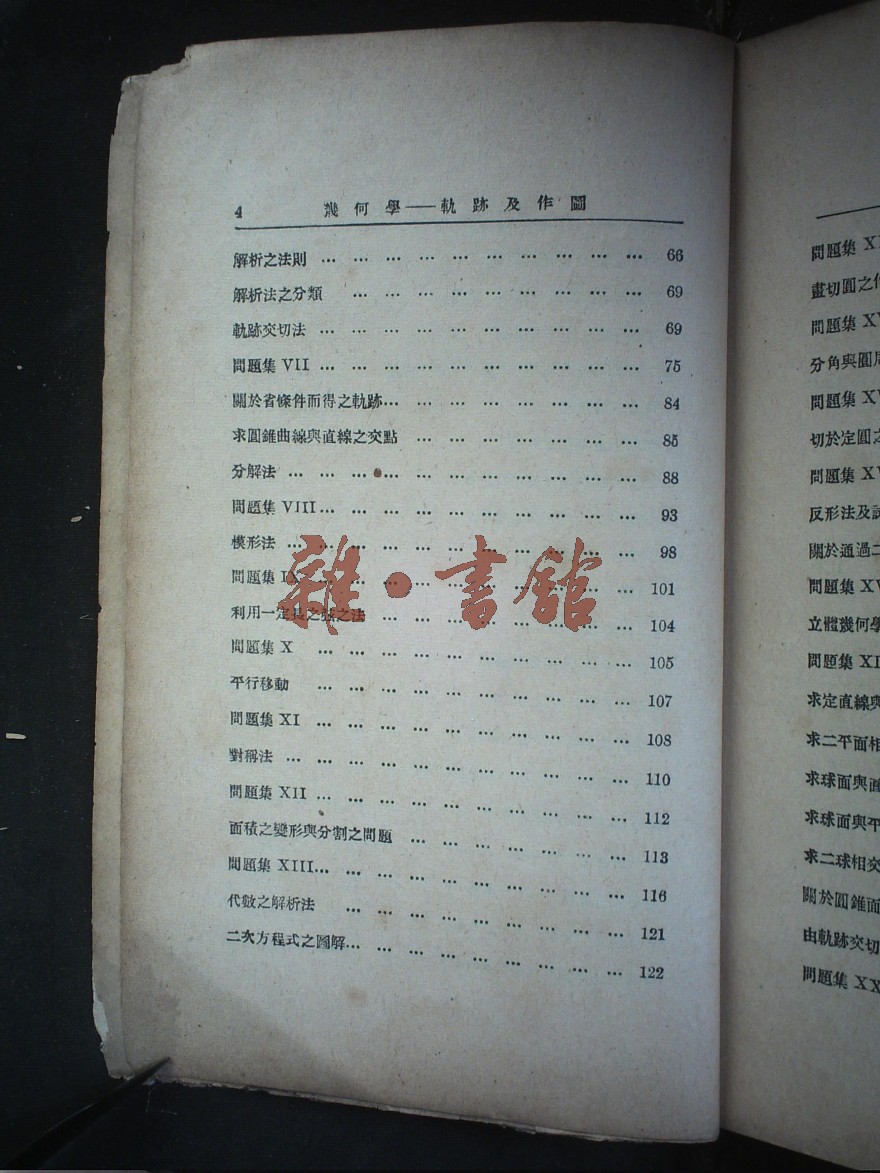 4 幾何學——軌跡及作圖
解析之法則 … … … … … … … … … … … 66
解析法之分類 … … … … … … … … … … 69
軌跡交切法 … … … … … … … … … … … 69
問題集 VII … … … … … … … … … … … 75
關於省條件而得之軌跡… … … … … … … … … 84
求圓錐曲線與直線之交點 … … … … … … … … 85
分解法 … … … … … … … … … … … … 88
問題集 VIII… … … … … … … … … … … 93
模形法 … … … … … … … … … … … … 98
問題集 IX … … … … … … … … … … 101
利用一定長之 之法 … … … … … … … … … 104
問題集 X … … … … … … … … … … … 105
平行移動 … … … … … … … … … … … 107
問題集 XI … … … … … … … … … … … 108
對稱法 … … … … … … … … … … … … 110
問題集 XII … … … … … … … … … … … 112
面積之變形與分割之問題 … … … … … … … … 113
問題集 XIII… … … … … … … … … … … 116
代數之解析法 … … … … … … … … … … 121
二次方程式之圖解… … … … … … … … … … 122
雜·書館
問題集
畫切圓之
問題集
分角與圓
問題集
切於定圓之
問題集
反形法及
關於通過二
問題集
立體幾何學
問題集
求定直線與
求二平面相
求球面與
求球面與平
求二球相交
關於圓錐面
由軌跡交切
問題集 XX